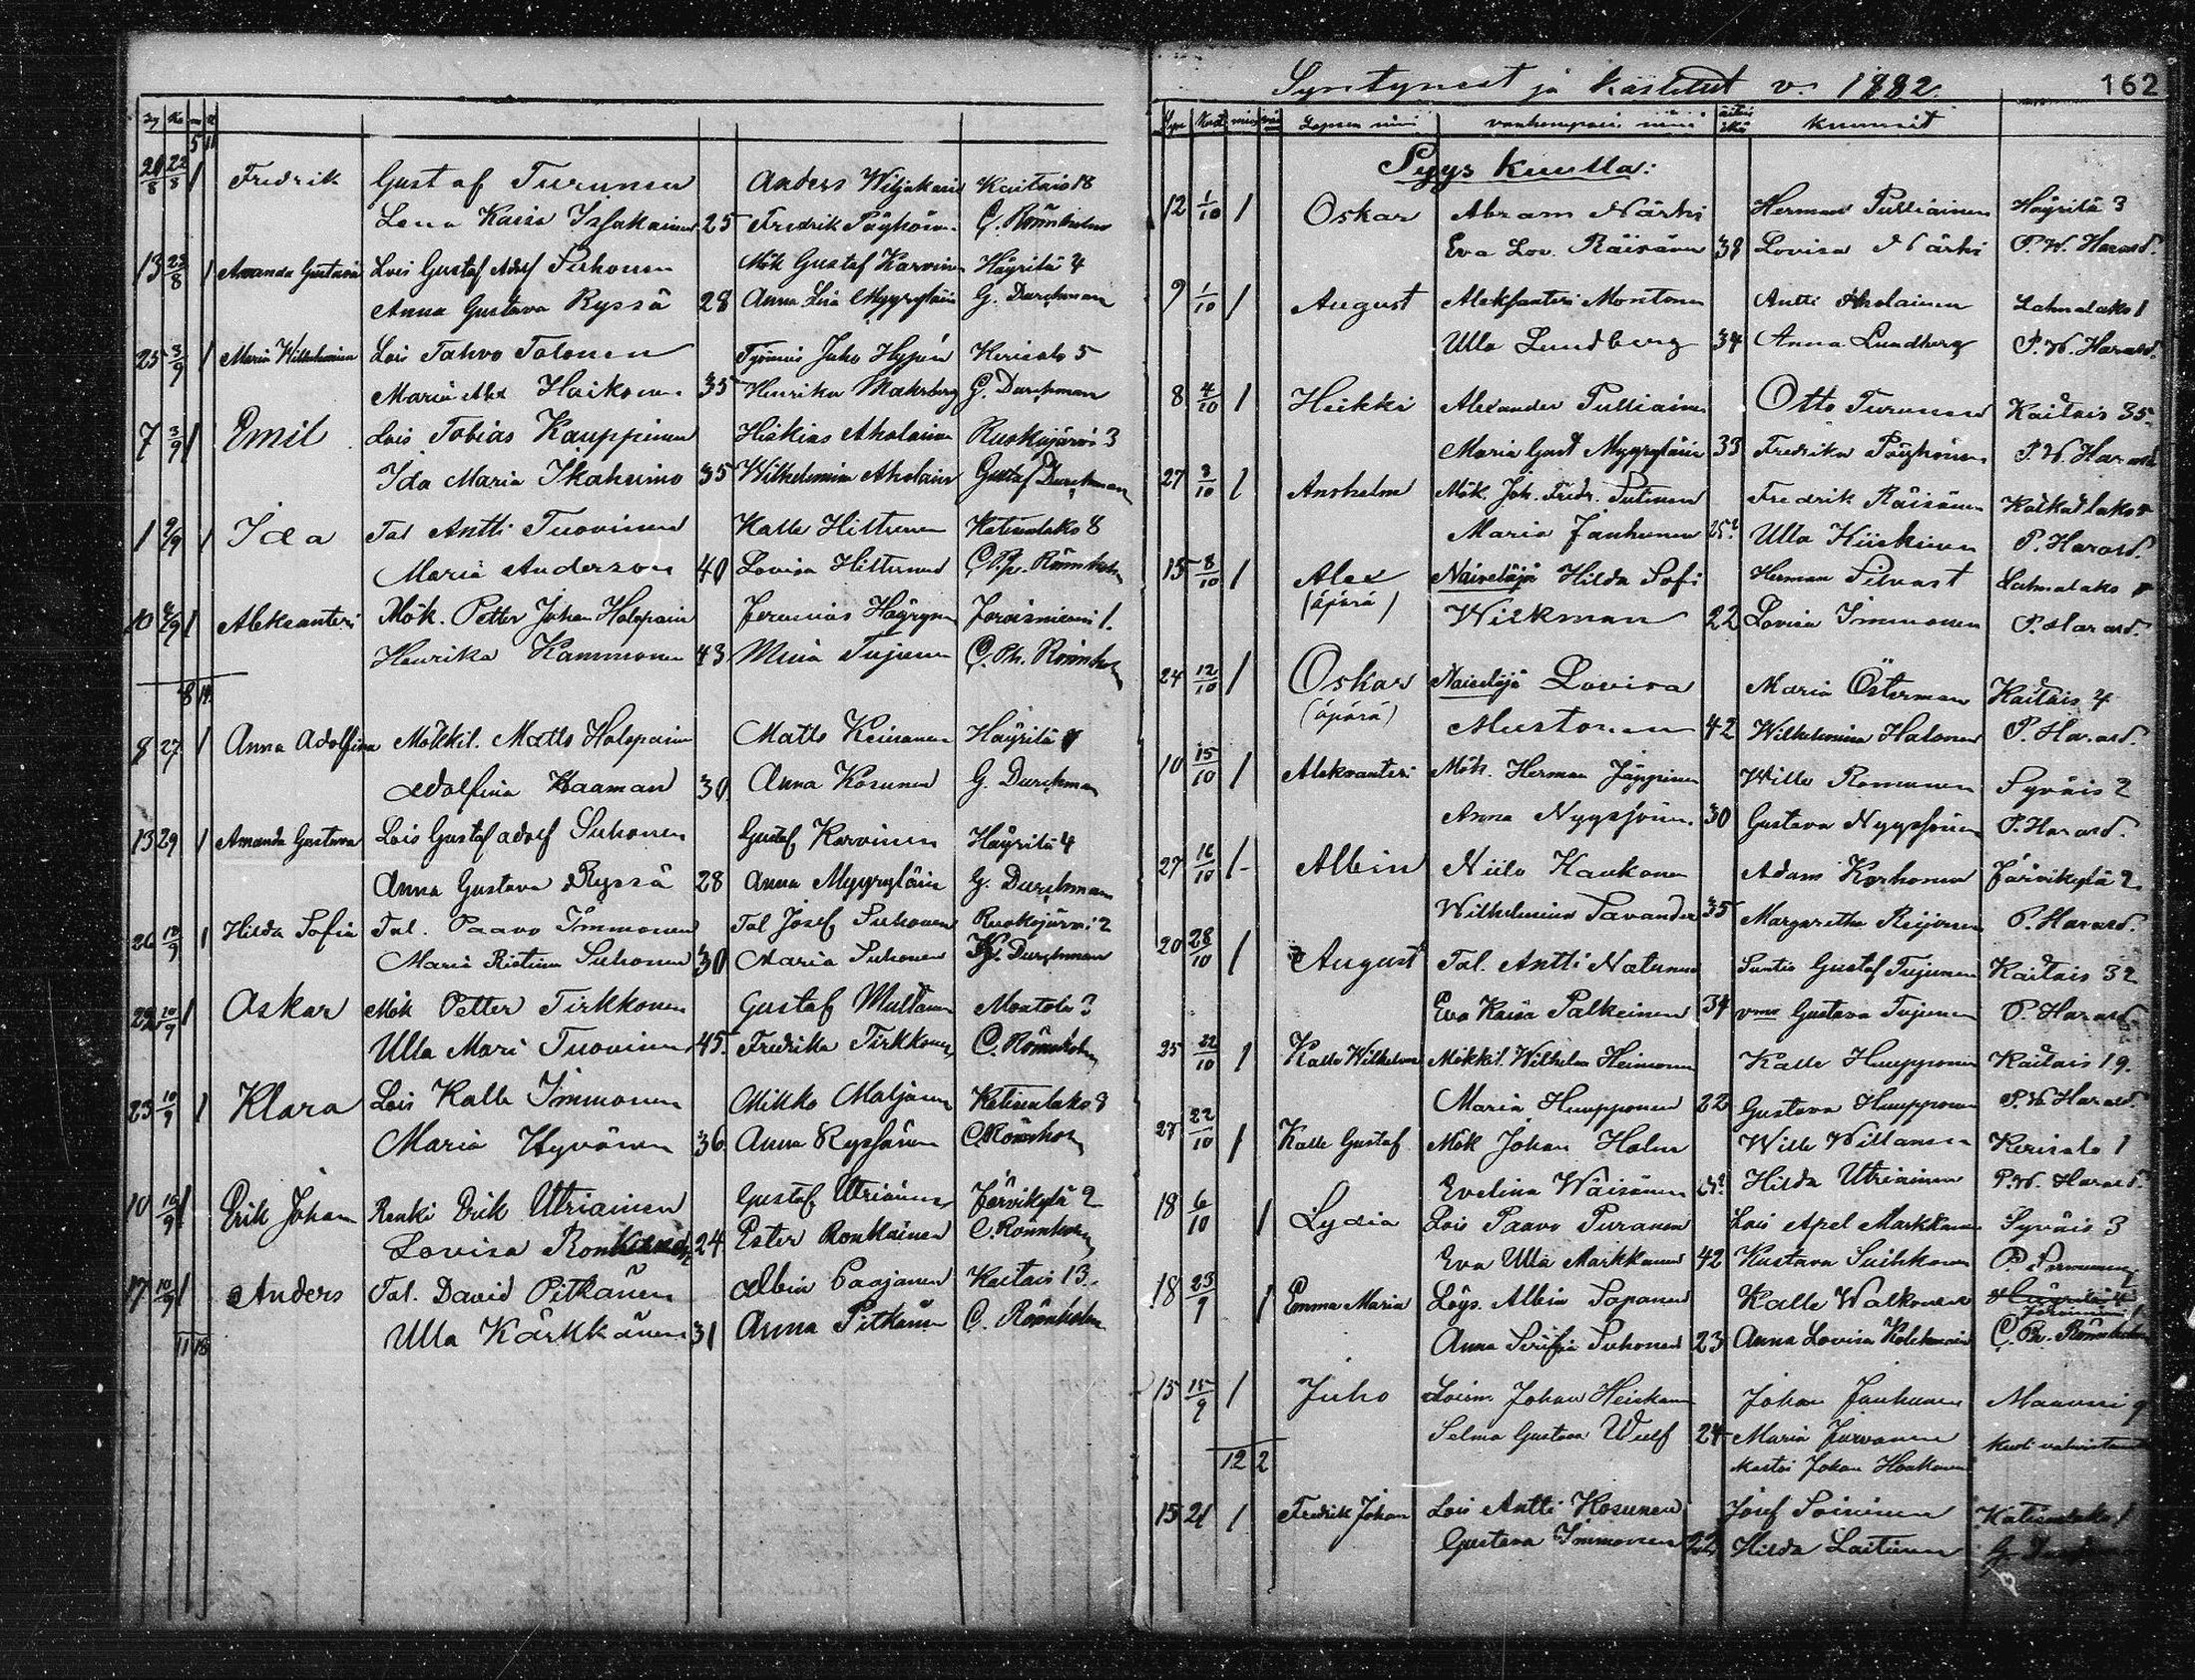 5 11
20/8 22/8 / Fredrik Gustaf Turunen Anders Kaitais 18
Lena Kaisa 25 Fredrik Pöyhönen C. Rönnholm
13 23/8 / Amanda Gustava Lois Gustaf Adolf Suhonen Mök Gustaf Karvinen Häyrilä 4
Anna Gustava Ryssä 28 Anna Lisa Myyryläin G. Durchman
25 3/9 / Maria Wilhelmiina Lois Tahvo Tolonen Juho Kerisalo 5
Maria Alex Haikonen 35 Henrika G. Durchman
7 3/9 / Emil Lois Tobias Kauppinen Hiskias Aholainen Ruokojärvi 3
Ida Maria Ikäheimo 35 Wilhelmina Aholain Gustaf Durchman
1 /9 / Ida Tal Antti Tuovinen Kalle Hiltunen Katisenlaks 8
Maria Anderson 40 Lovisa Hiltunen Rönnholm
10 /9 / Aleksanteri Mök. Petter Johan Holopain Jeremias Häyrynen Joroisniemi 1.
Henrika Kammonen 43 Miina Tujunen C. Ph. Rönnholm
8 14
8 27 / Anna Adolfina Mökkil. Matts Holopain Matts Keinonen Häyrilä
Adolfina Haaman 30. Anna Kosunen G. Durchman
13 29 / Amanda Gustava Lois Gustaf Adolf Suhonen Gustaf Karvinen Häyrilä 4
Anna Gustava Ryssä 28 Anna Myyryläin G. Durchman
26 10/9 / Hilda Sofia Tal. Paavo Immonen Tal Josef Suhonen Ruokojärvi 2
Maria Ristiina Suhonen 30 Maria Suhonen G. Durchman
22 10/9 / Oskar Mök Petter Tirkkonen Gustaf Multanen Montola 3
Ulla Mari Tuovinen 45. Fredrika Tirkkonen C. Rönnholm
23 10/9 / Klara Lois Kalle Immonen Mikko Maljanen Katisenlaks 8
Maria Hyvönen 36 Anna C. Rönnholm
10 10/9 / Erik Johan Renki Erik Utriainen Gustaf Utriainen Järvikylä 2
Lovisa Ronkanen 24 Ester Ronkainen C. Rönnholm
17 10/9 / Anders Tal. David Pitkänen Albin Paajanen Kaitais 13.
Ulla Kärkkänen 31 Anna Pitkänen C. Rönnholm
11 18
Syntyneet ja kastetut v. 1882. 162
Lapsen nimi vanhempain nimi äitin ikä kummit
Syys kuulla:
12 1/10 / Oskar Abram Närhi Herman Pulliainen Häyrilä 3
Eva Lov. Räisänen 38 Lovisa Närhi P. W. Harald.
9 1/10 / August Aleksanteri Montonen Antti Aholainen Lahnalaks 1
Ulla Lundberg 34 Anna Lundberg P. W. Harald.
8 4/10 / Heikki Alexander Pulliainen Otto Turunen Kaitais 35.
Maria Gust Myyryläin 33 Fredrika Pöyhönen P. W. Harald
27 8/10 / Anshelm Mök. Joh. Fredr. Putinen Fredrik Räisänen
Maria Janhunen 25? Ulla Kiiskinen P. Harald.
15 8/10 / Alex Naiseläjä Hilda Sofi Herman Silvast Lahnalaks
(äpärä) Wilkman 22 Lovisa Immonen P. Harald.
24 12/10 / Oskar Naiseläjä Lovisa Maria Österman Kaitais 4
(äpärä) Mustonen 42 Wilhelmina Halonen P. Harald.
10 15/10 / Aleksanteri Mök. Herman Jäppinen Wille Romanen Syväis 2
Anna Nyyssönen 30 Gustava Nyyssönen P. Harald.
27 16/10 / Albin Niilo Kaukonen Adam Korhonen Järvikylä 2
Wilhelmina Savander 35 Margaretha Reijonen P. Harald.
20 28/10 / August Tal. Antti Natunen Suntio Gustaf Tujunen Kaitais 32
Eva Kaisa Palkeinen 34 vmo Gustava Tujunen P. Harald
25 22/10 / Kalle Wilhelm Mökkil. Wilhelm Heimonen Kalle Huupponen Kaitais 19.
Maria Huupponen 22 Gustava Huupponen P. W. Harald.
27 22/10 / Kalle Gustaf Mök Johan Holm Wille Willanen Kerisalo 1
Evelina Wäisänen Hilda Utriainen P. W. Harald.
18 6/10 / Lydia Lois Paavo Puranen Lois Apel Markkanen Syväis 3
Eva Ulla Markkanen 42 Kustava Suihkonen
18 23/9 / Emma Maria Löys. Albin Sapanen Kalle Walkonen Häyrilä 4 Joroisniemi 1
Anna Serafia Suhonen 23 Anna Lovisa Kolehmain C. Ph. Rönnholm
15 15/9 / Juho Loism. Johan Heiskanen Johan Janhunen Maavesi 9
Selma Gustava Wulf 24 Maria Jurvanen
12 2 Johan
15 21 / Fredrik Johan Lois Antti Kosunen Josef Soininen Katisenlaks 1
Gustava Immonen 22 Hilda Laitinen